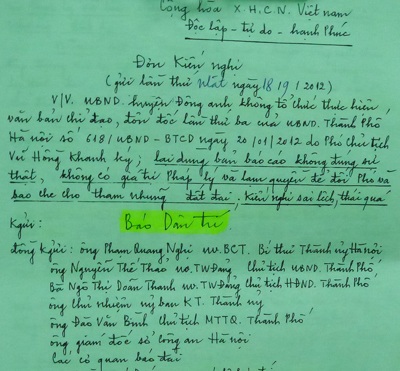 Cộng hòa X.H.C.N. Việt nam
Độc lập - tự do - hạnh phúc
Đơn Kiến nghị
(gửi lần thứ nhất ngày 18/9/2012)
V/V. UBND. huyện Đông anh không tổ chức thực hiện
văn bản chỉ đạo, đôn đốc lần thứ ba của UBND. Thành Phố
Hà nội số 618/UBND-BTCD ngày 20/01/2012 do Phó chủ tịch
Vũ Hồng Khanh ký; lại dùng bản báo cáo không đúng sự
thật, không có giá trị Pháp lý và lạm quyền để đối Phó và
bao che cho tham nhũng đất đai; kiến nghị sai lệch, thái quá
Kgửi: Báo Dân trí
đồng Kgửi: ông Phạm Quang Nghị UV.BCT. Bí thư Thành ủy Hà nội
ông Nguyễn Thế Thảo UV.TW Đảng chủ tịch UBND. Thành Phố
Bà Ngô Thị Doãn Thanh UV.TW Đảng chủ tịch HĐND. Thành Phố
ông chủ nhiệm ủy ban KT. Thành ủy
ông Đào Văn Bình chủ tịch MTTQ. Thành Phố
ông giám đốc sở công an Hà nội
các cơ quan báo đài